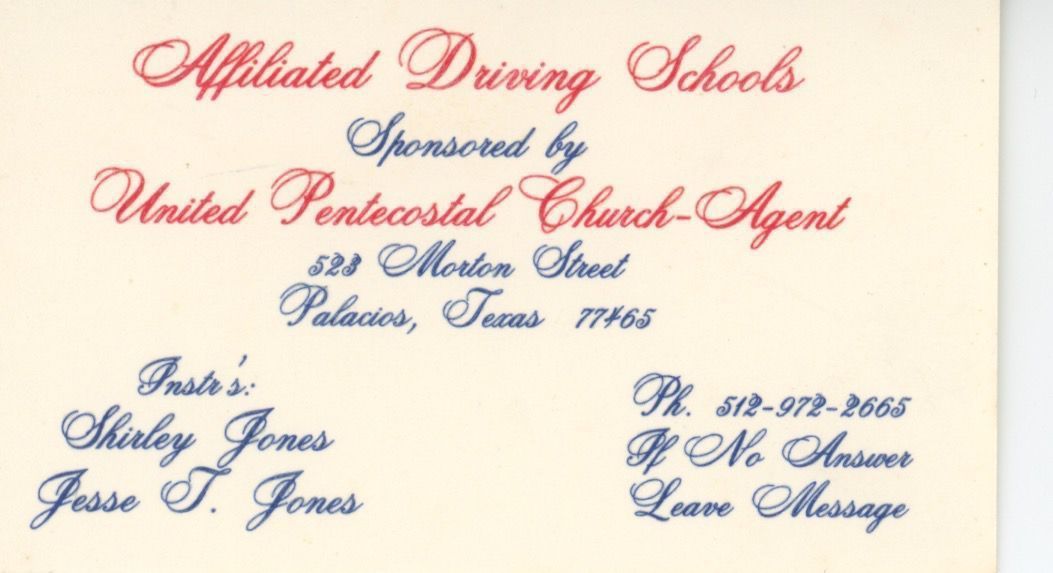 Affiliated Driving Schools
Sponsored by
United Pentecostal Church-Agent
523 Morton Street
Palacios, Texas 77465
Instr's:
Shirley Jones
Jesse T. Jones
Ph. 512-972-2665
If No Answer
Leave Message